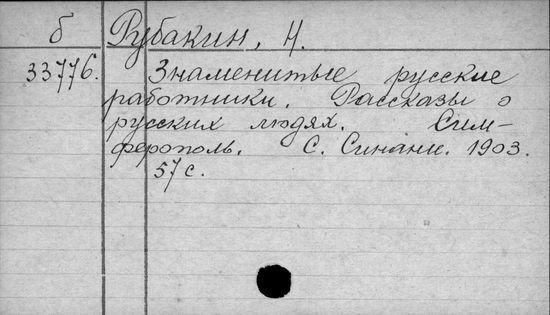 б Рубакин, Н.
33776. Знаменитые русские
работники. Рассказы о
русских людях. Сим-
ферополь. С. Синани. 1903.
57 с.